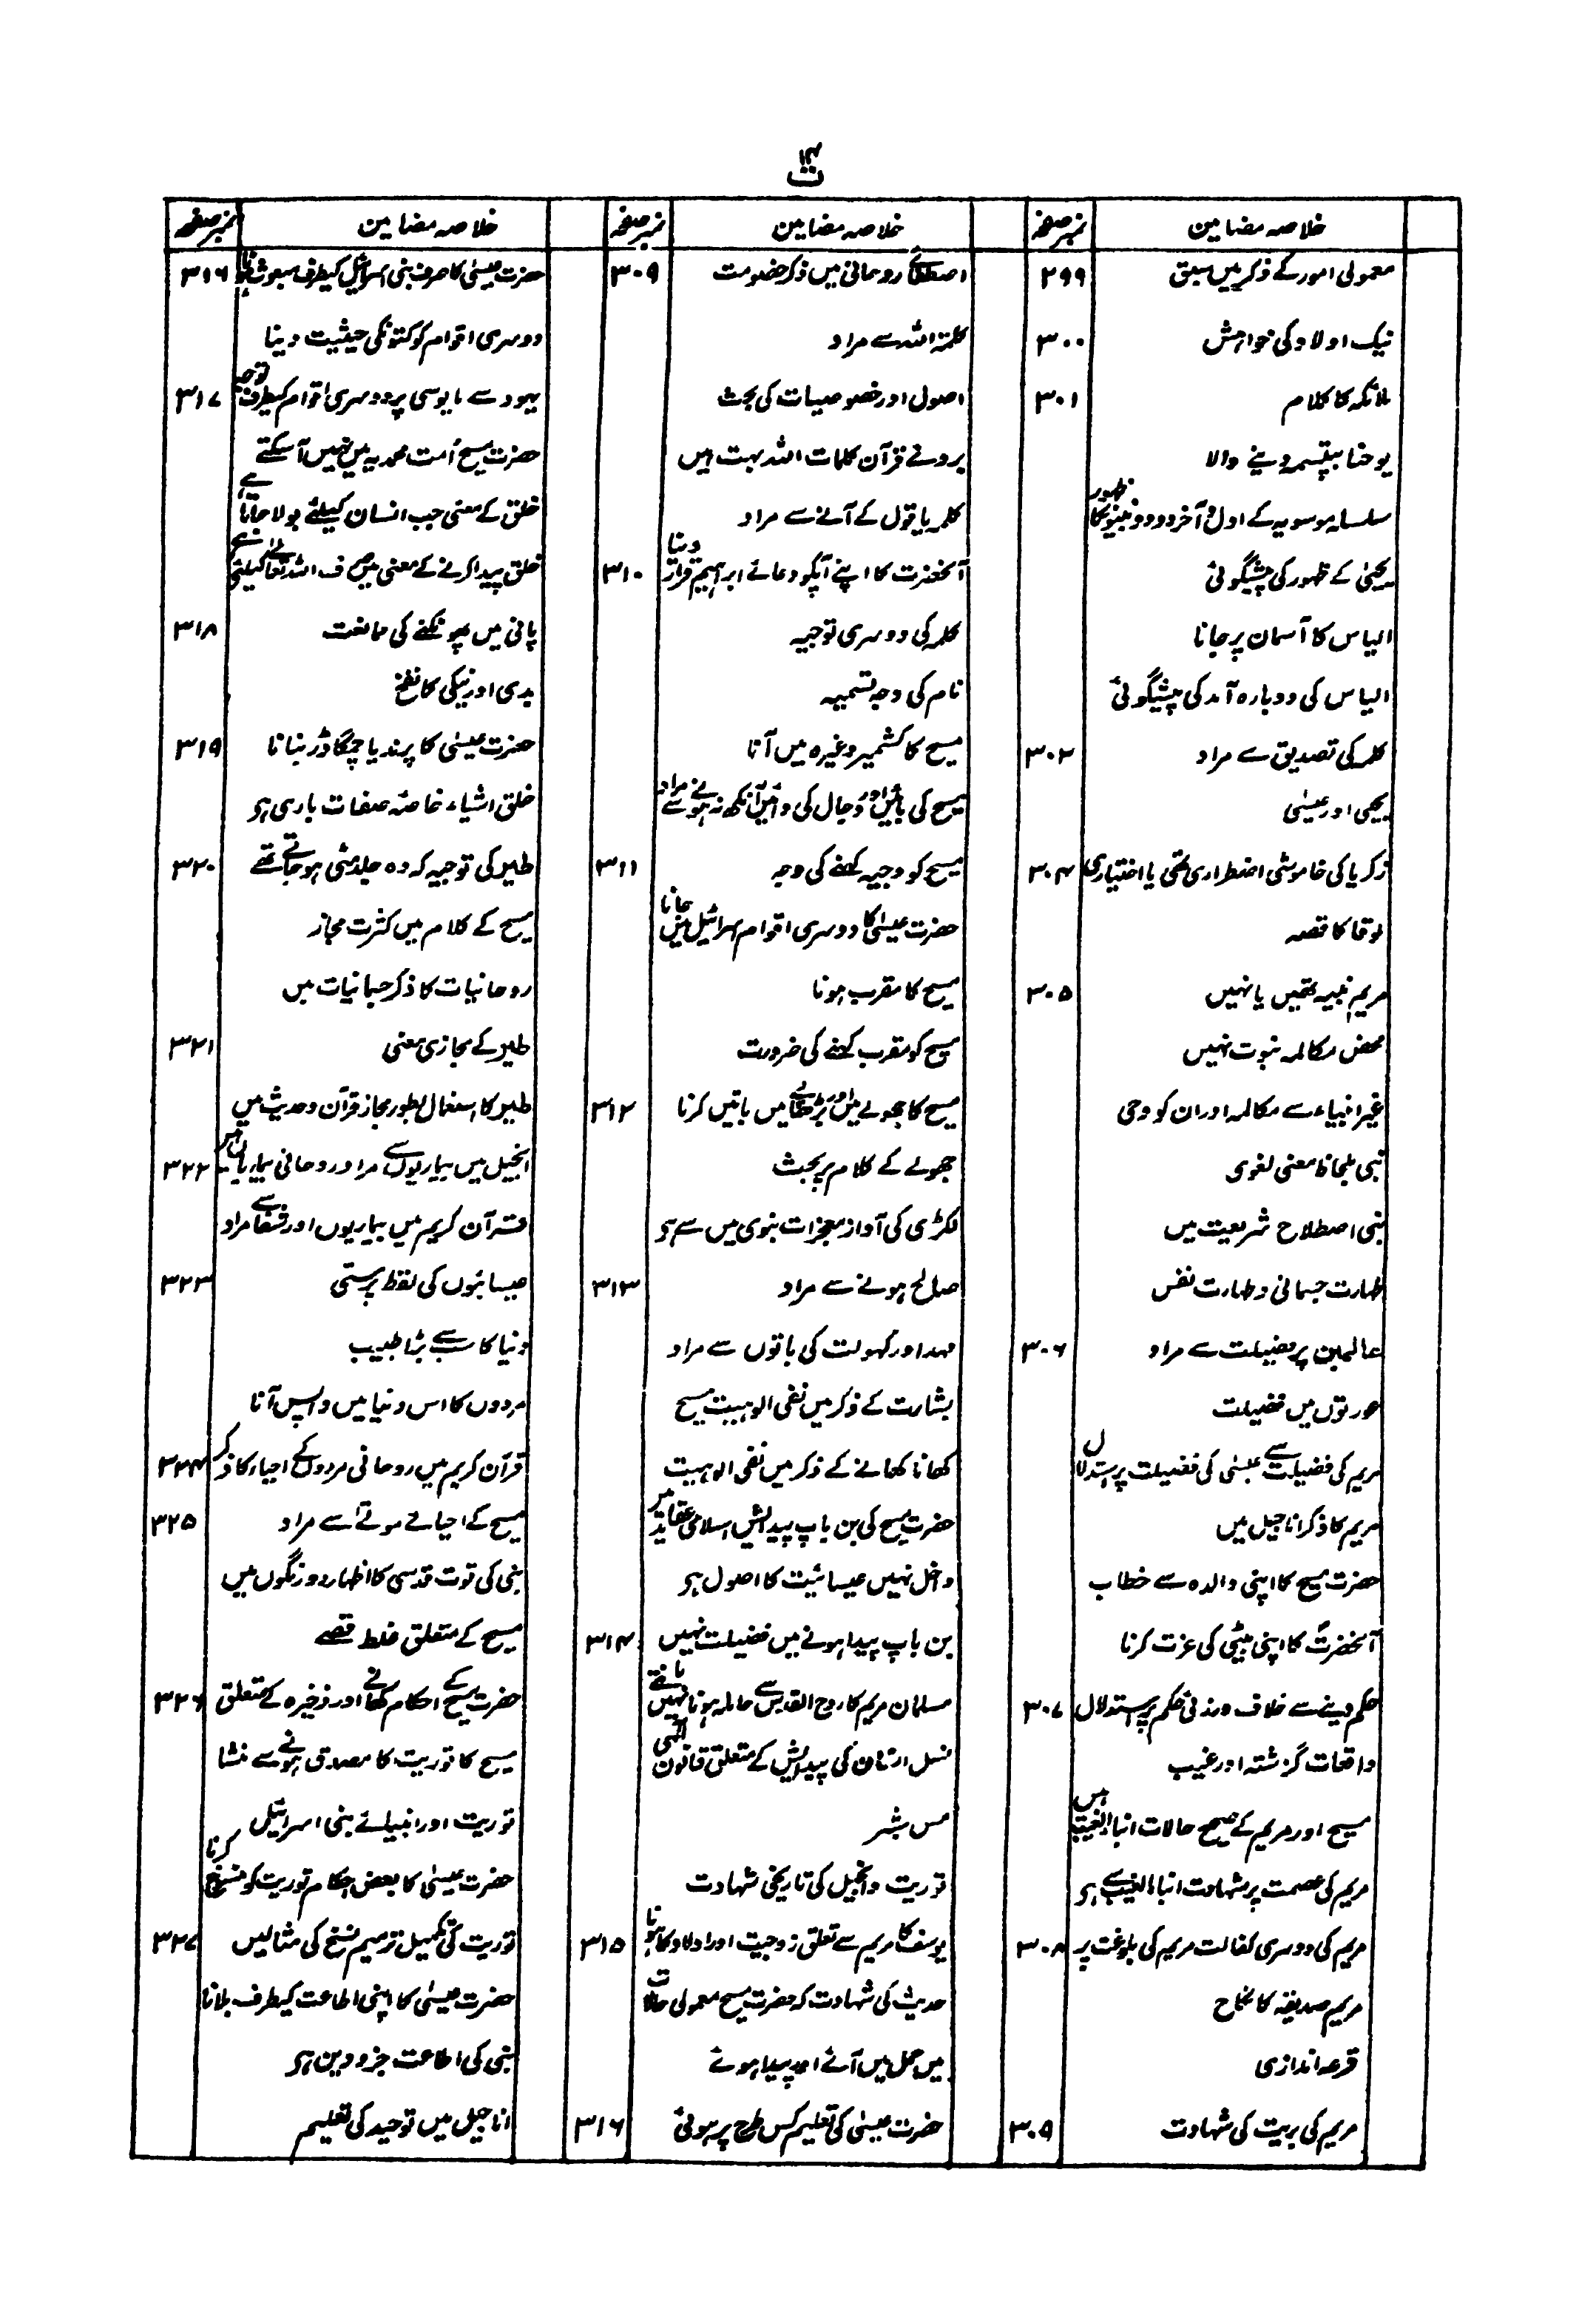 خلاصہ مضامین
نمبر صفحہ
معمولی امور کے ذکر میں سبق ۲۹۹
نیک اولاد کی خواہش ۳۰۰
ملائکہ کا کلام ۳۰۱
یوحنا بپتسمہ دینے والا
سلسلہ موسویہ کے اول و آخر دو دو نبیونکا ظہور
یحییٰ کے ظہور کی پیشگوئی
الیاس کا آسمان پر جانا
الیاس کی دوبارہ آمد کی پیشگوئی
کلمہ کی تصدیق سے مراد ۳۰۲
یحیی اور عیسیٰ
زکریا کی خاموشی اضطراری تھی یا اختیاری ۳۰۴
لوقا کا قصہ
مریم نبیہ تھیں یا نہیں ۳۰۵
محض مکالمہ نبوت نہیں
غیر انبیاء سے مکالمہ اور ان کو وحی
نبی بلحاظ معنی لغوی
نبی اصطلاح شریعت میں
طہارت جسمانی و طہارت نفس
عالمین پر فضیلت سے مراد ۳۰۶
عورتوں میں فضیلت
مریم کی فضیلت سے عیسٰی کی فضیلت پر استدلال
مریم کا ذکر اناجیل میں
حضرت مسیح کا اپنی والدہ سے خطاب
آنحضرت کا اپنی بیٹی کی عزت کرنا
حکم دینے سے خلاف ورزئی حکم پر استدلال ۳۰۷
واقعات گزشتہ اور غیب
مسیح اور مریم کے صحیح حالات انباء الغیب ہیں
مریم کی عصمت پر شہادت انباء الغیب سے ہی
مریم کی دوسری کفالت مریم کی بلوغت پر ۳۰۸
مریم صدیقہ کا نکاح
قرعہ اندازی
مریم کی بریت کی شہادت ۳۰۹
خلاصہ مضامین
نمبر صفحہ
اصطفائے روحانی میں ذکر خصومت ۳۰۹
کلمۃ اللہ سے مراد
اصول اور خصوصیات کی بحث
بروئے قرآن کلمات اللہ بہت ہیں
کلمہ یا قول کے آنے سے مراد
آنحضرت کا اپنے آپکو دعائے ابراہیم قرار دینا ۳۱۰
کلمہ کی دوسری توجیہ
نام کی وجہ تسمیہ
مسیح کا کشمیر وغیرہ میں آنا
مسیح کی بائیں اور دجال کی دائیں آنکھ نہ ہونے سے مراد
مسیح کو وجیہ کہنے کی وجہ ۳۱۱
حضرت عیسیٰ کا دوسری اقوام اسرائیل میں جانا
مسیح کا مقرب ہونا
مسیح کو مقرب کہنے کی ضرورت
مسیح کا جھولے میں اور بڑھاپے میں باتیں کرنا ۳۱۲
جھولے کے کلام پر بحث
لکڑی کی آواز معجزات نبوی میں سے ہی
صالح ہونے سے مراد ۳۱۳
مہد اور کہولت کی باتوں سے مراد
بشارت کے ذکر میں نفی الوہیت مسیح
کھانا کھانے کے ذکر میں نفی الوہیت
حضرت مسیح کی بن باپ پیدائش اسلامی عقاید میں
داخل نہیں عیسائیت کا اصول ہی
بن باپ پیدا ہونے میں فضیلت نہیں ۳۱۴
مسلمان مریم کا روح القدس سے حاملہ ہونا نہیں مانتے
نسل انسان کی پیدایش کے متعلق قانون الٰہی
مس بشر
توریت و انجیل کی تاریخی شہادت
یوسف کا مریم سے تعلق زوجیت اور اولاد کا ہونا ۳۱۵
حدیث کی شہادت کہ حضرت مسیح معمولی حالات
میں حمل میں آئے اور پیدا ہوئے
حضرت عیسیٰ کی تعلیم کس طرح پر ہوئی ۳۱۶
خلاصہ مضامین
نمبر صفحہ
حضرت عیسیٰ کا صرف بنی اسرائیل کیطرف مبعوث ہونا ۳۱۶
دوسری اقوام کو کتونکی حیثیت دینا
یہود سے مایوسی پر دوسری اقوام کیطرف توجہ ۳۱۷
حضرت مسیح اُمت محمدیہ میں نہیں آسکتے
خلق کے معنی جب انسان کیلئے بولا جاتا ہے
خلق پیدا کرنے کے معنی میں صرف اللہ تعالٰی کیلئے ہے
پانی میں پھونکنے کی ممانعت ۳۱۸
بدی اور نیکی کا نفخ
حضرت عیسیٰ کا پرند یا چمگادڑ بنانا ۳۱۹
خلق اشیاء خاصۂ صفات باری ہی
طیر کی توجیہ کہ وہ جلد مٹی ہو جاتے تھے ۳۲۰
مسیح کے کلام میں کثرت مجاز
روحانیات کا ذکر جسمانیات میں
طیر کے مجازی معنی ۳۲۱
طیر کا استعمال بطور مجاز قرآن و حدیث میں
انجیل میں بیماریوں سے مراد روحانی بیماریاں ہیں ۳۲۲
قرآن کریم میں بیماریوں اور شفا سے مراد
عیسائیوں کی لفظ پرستی ۳۲۳
دنیا کا سب سے بڑا طبیب
مردوں کا اس دنیا میں واپس آنا
قرآن کریم میں روحانی مردوں کے احیاء کا ذکر ۳۲۴
مسیح کے احیائے موتے سے مراد ۳۲۵
نبی کی قوت قدسی کا اظہار دو رنگوں میں
مسیح کے متعلق غلط قصے
حضرت مسیح کے احکام کھانے اور ذخیرہ کے متعلق ۳۲۶
مسیح کا توریت کا مصدق ہونے سے منشا
توریت اور انبیائے بنی اسرائیل
حضرت عیسیٰ کا بعض احکام توریت کو منسوخ کرنا
توریت کی تکمیل ترمیم نسخ کی مثالیں ۳۲۷
حضرت عیسیٰ کا اپنی اطاعت کیطرف بلانا
نبی کی اطاعت جزو دین ہی
اناجیل میں توحید کی تعلیم